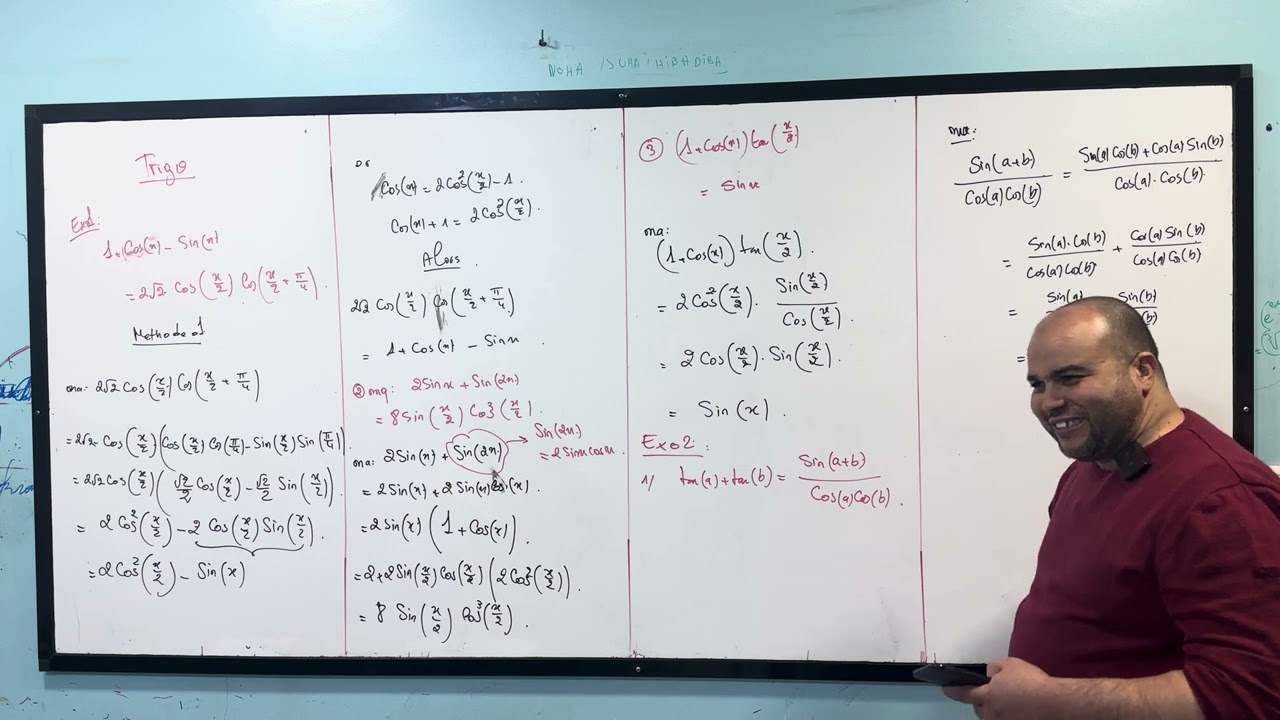 NOHA / SUHA / HIBA DIBA
Trigo
Exo1:
1+Cos(x) - Sin(x)
= 2√2 Cos(x/2) Cos(x/2 + π/4).
Methode 1
ona: 2√2 Cos(x/2) Cos(x/2 + π/4)
= 2√2 Cos(x/2) (Cos(x/2) Cos(π/4) - Sin(x/2) Sin(π/4))
= 2√2 Cos(x/2) (√2/2 Cos(x/2) - √2/2 Sin(x/2))
= 2Cos²(x/2) - 2 Cos(x/2) Sin(x/2).
= 2Cos²(x/2) - Sin(x)
or
Cos(x) = 2Cos²(x/2) - 1.
Cos(x) + 1 = 2Cos²(x/2).
Alors
2√2 Cos(x/2) Cos(x/2 + π/4)
= 1 + Cos(x) - Sin x.
② mq: 2Sin x + Sin(2x)
= 8 Sin(x/2) Cos³(x/2).
ona: 2Sin(x) + Sin(2x)
Sin(2x)
= 2Sinx cosx.
= 2Sin(x) + 2Sin(x) Cos(x).
= 2Sin(x) (1 + Cos(x)).
= 2×2Sin(x/2) Cos(x/2) (2Cos²(x/2)).
= 8 Sin(x/2) Cos³(x/2).
③ (1+Cos(x)) tan(x/2)
= Sin x
ona:
(1+Cos(x)) tan(x/2).
= 2Cos²(x/2) · Sin(x/2)/Cos(x/2).
= 2Cos(x/2) · Sin(x/2).
= Sin(x).
Exo2:
1/ tan(a) + tan(b) = Sin(a+b)/Cos(a)Cos(b).
ona:
Sin(a+b)/Cos(a)Cos(b) = Sin(a)Cos(b) + Cos(a)Sin(b)/Cos(a)·Cos(b).
= Sin(a)·Cos(b)/Cos(a)Cos(b) + Cos(a)Sin(b)/Cos(a)Cos(b)
= Sin(a) Sin(b)
=